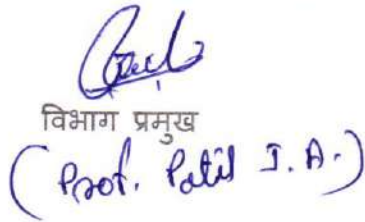 विभाग प्रमुख
(Prof. Patil J. A.)